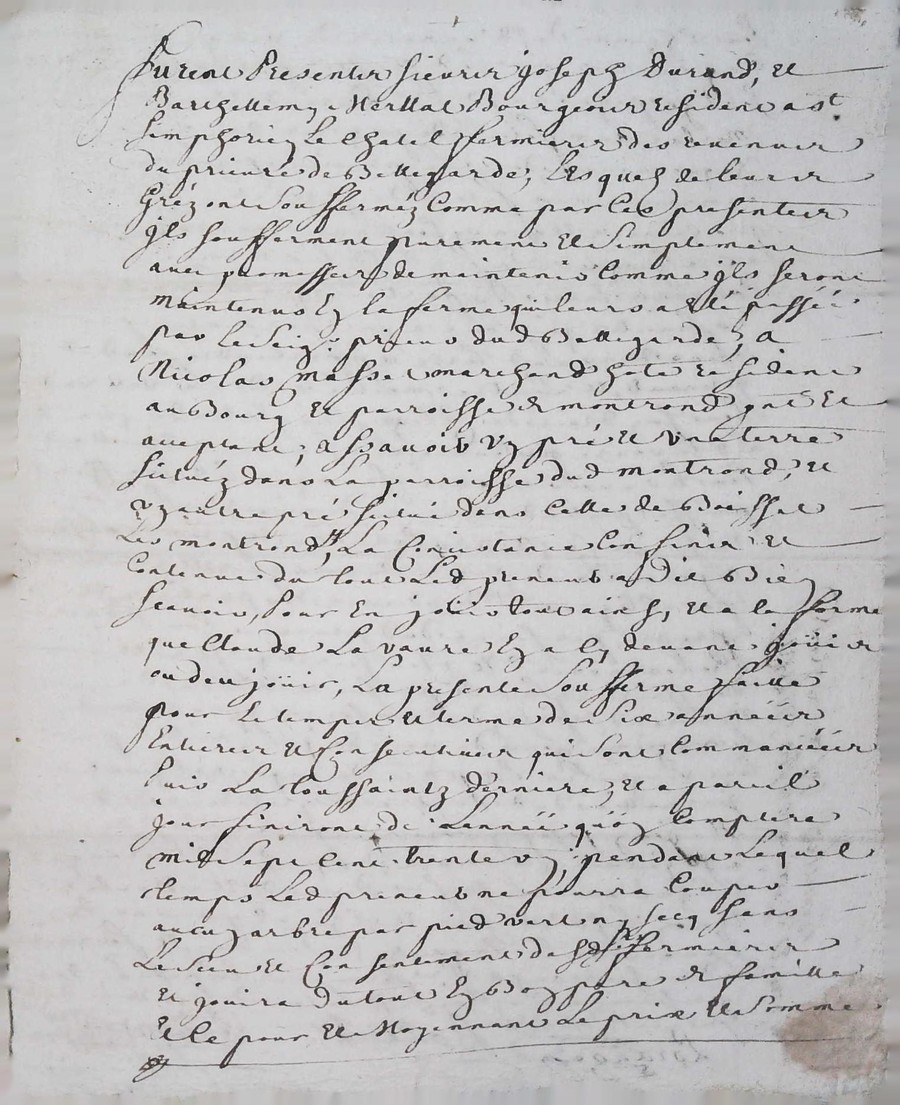 furent Presentz sieurs joseph Durand, et
Barthellemy Merllat Bourgeois residentz a st
simphorien Le chatel fermiers des revenus
du prieuré de Bellegarde, Lesquelz de leurs
Gréz ont soufferméz Comme par Ces presentes
jls soufferment purement et simplement
avec promesses de maintenir Comme jls seront
maintenus En la ferme qui leurs a été passée
par Le seigr prieur dud Bellegarde, a
Nicolas masset marchand hote resident
au Bourg et parroisse de montrond pnt et
acceptant, assavoir vn pré et vne terre
situéz dans La parroisse dud montrond, et
vn autre pré situé dans Celle de Boisset
Les montrond, La Consistance Confins et
Contenue du tout Led preneur a dit Bien
scavoir, pour En jouir tout ainsy et a la forme
que Claude La vaure En a cy devant joüir
ou deu joüir, La presente soufferme faitte
pour Le temps et terme de six annéés
Entieres et Consecutives qui sont Commancéés
puis La toussaintz derniere, et a pareil
jour finiront de L'annéé qu'on Comptera
mil sept cent trente vn, pendant Lequel
temps Led preneur ne pourra Couper
aucun arbre par pied vert ny secq sans
Le sceu et Consentement desd srs fermiers
et jouira du tout En Bon pere de famille
Et ce pour et Moyennant Le prix et somme